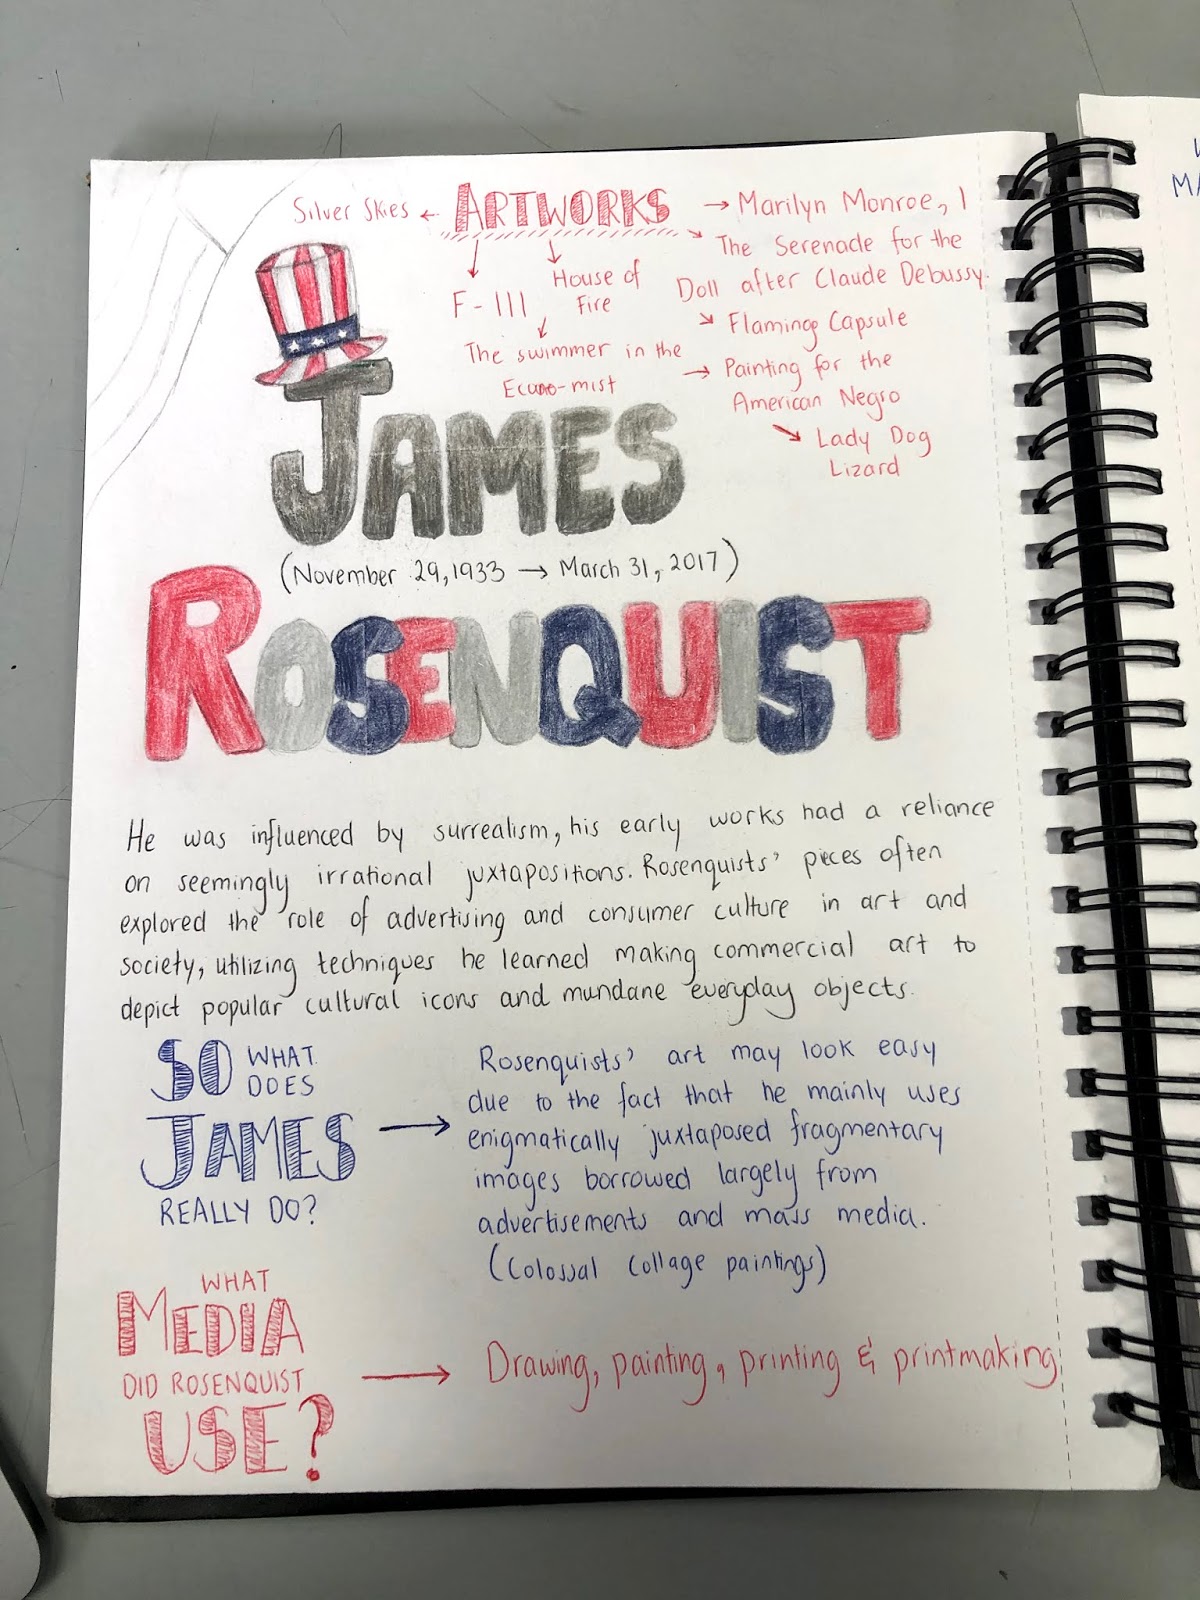 ARTWORKS
Silver Skies
F-111
House of
Fire
The swimmer in the
Econo-mist
Marilyn Monroe, I
The Serenade for the
Doll after Claude Debussy.
Flaming Capsule
Painting for the
American Negro
Lady Dog
Lizard
JAMES
(November 29, 1933 → March 31, 2017)
ROSENQUIST
He was influenced by surrealism, his early works had a reliance
on seemingly irrational juxtapositions. Rosenquists' pieces often
explored the role of advertising and consumer culture in art and
society, utilizing techniques he learned making commercial art to
depict popular cultural icons and mundane everyday objects.
SO WHAT
DOES
JAMES
REALLY DO?
Rosenquists' art may look easy
due to the fact that he mainly uses
enigmatically juxtaposed fragmentary
images borrowed largely from
advertisements and mass media.
(Colossal Collage paintings)
WHAT
MEDIA
DID ROSENQUIST
USE?
Drawing, painting, printing & printmaking